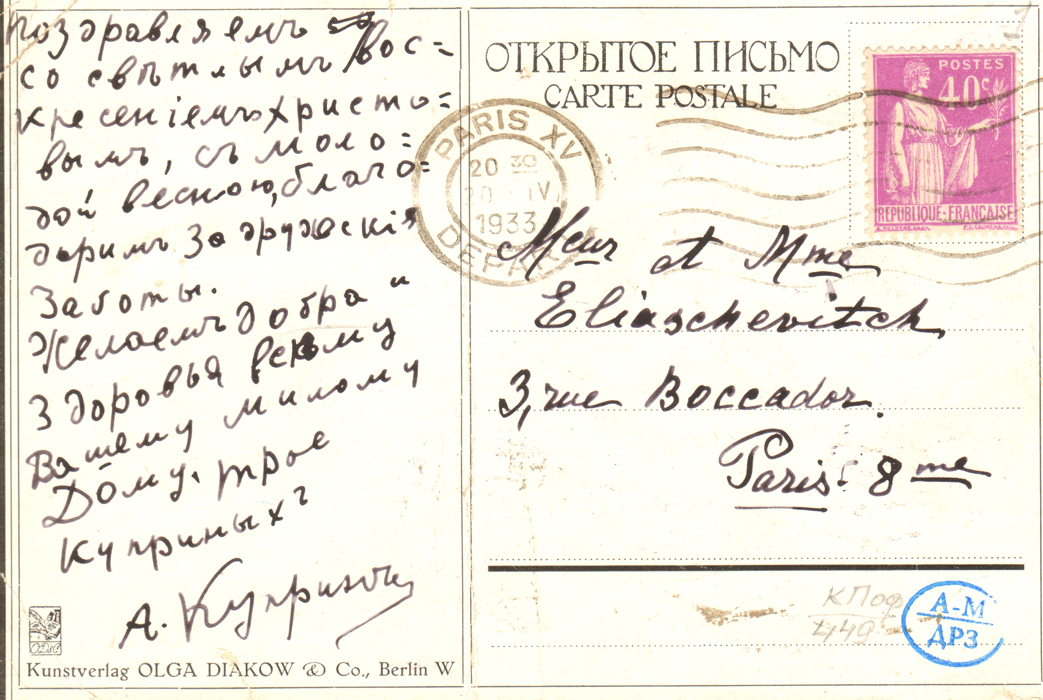 поздравляемъ
со свѣтлымъ Вос=
кресеніемъ христо=
вымъ, съ моло=
дой весною, благо=
даримъ за дружескія
Заботы.
Желаемъ добра и
Здоровья всему
Вашему милому
Дому. трое
Куприныхъ
А. Купринъ
Kunstverlag OLGA DIAKOW & Co., Berlin W
ОТКРЫТОЕ ПИСЬМО
CARTE POSTALE
PARIS XV
20 30
20 IV
1933
POSTES
40c
REPUBLIQUE-FRANÇAISE
Meur et Mme
Eliaschevitch,
3, rue Boccador.
Paris. 8me
КПоф
449
А-М
ДРЗ